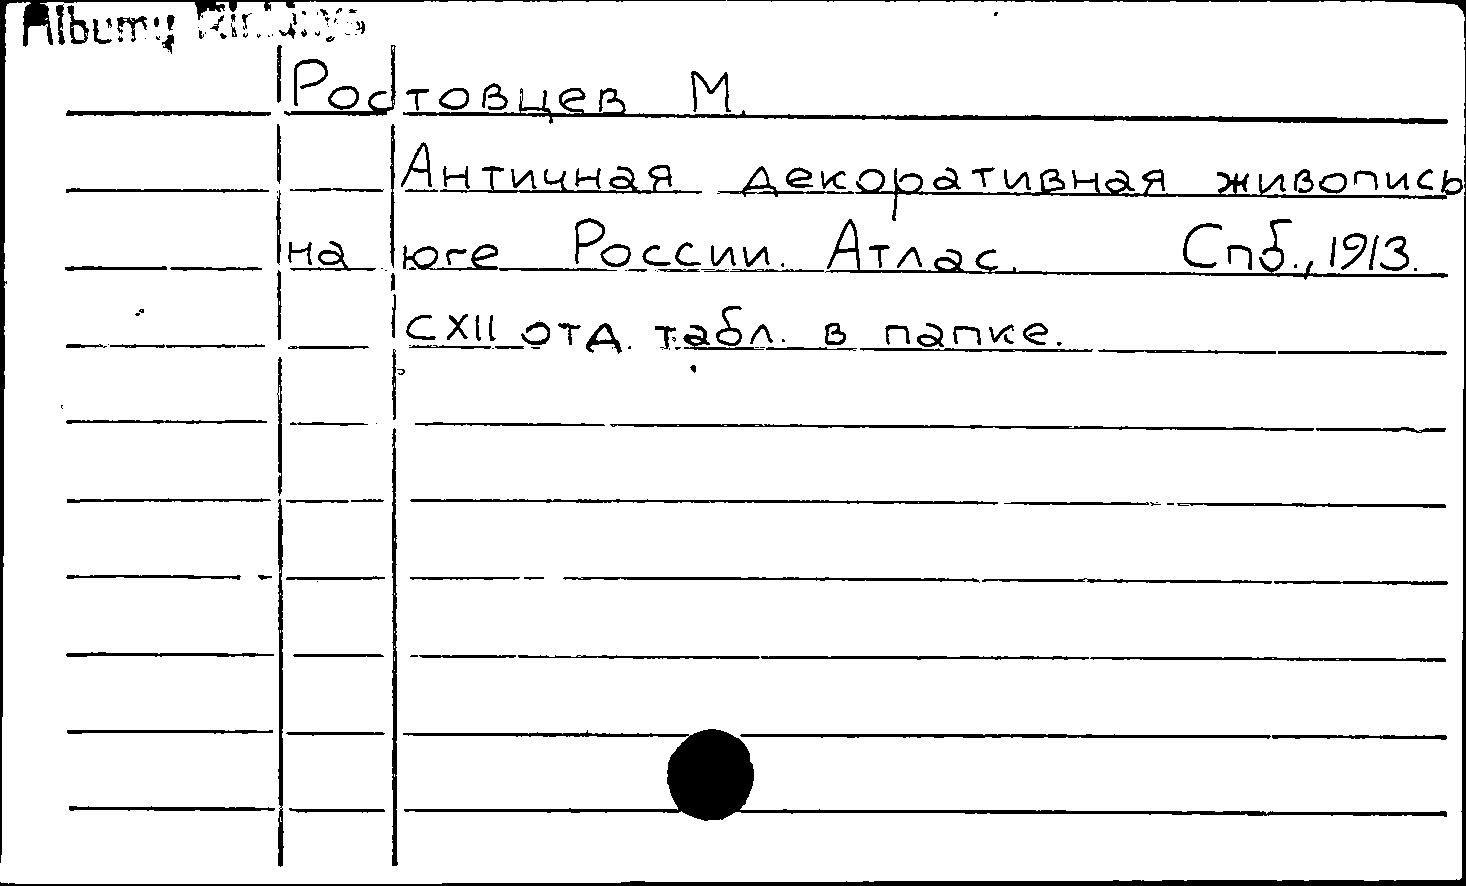 Albumų Rinkinys
Ростовцев М.
Античная декоративная живопись
на юге России. Атлас. Спб., 1913.
CXII отд. табл. в папке.